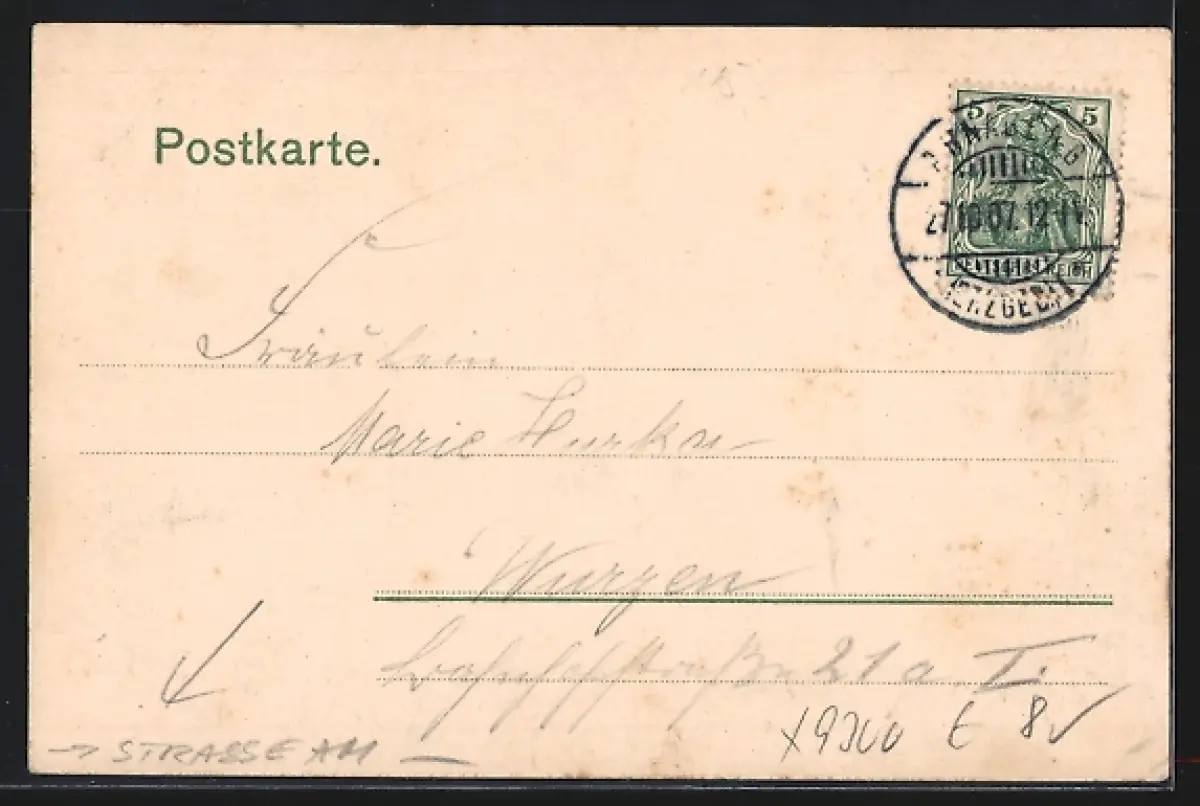 Postkarte.
5 5
27.10.07. 12-1V.
DEUTSCHES REICH
(ERZGEB.)
Fräulein
Marie
Wurzen
Bahnhofstraße 21a I.
x9300 € 8
→ STRASSE AM